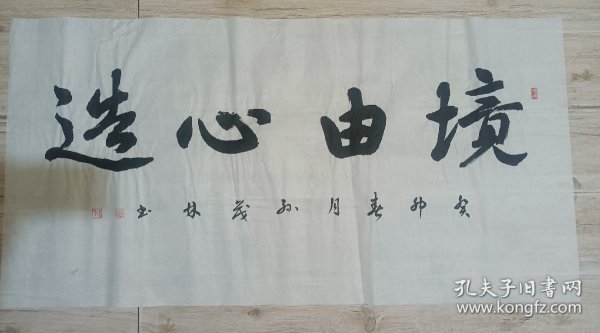 境由心造
癸卯春月孙茂林书
孔夫子旧书网
www.kongfz.com